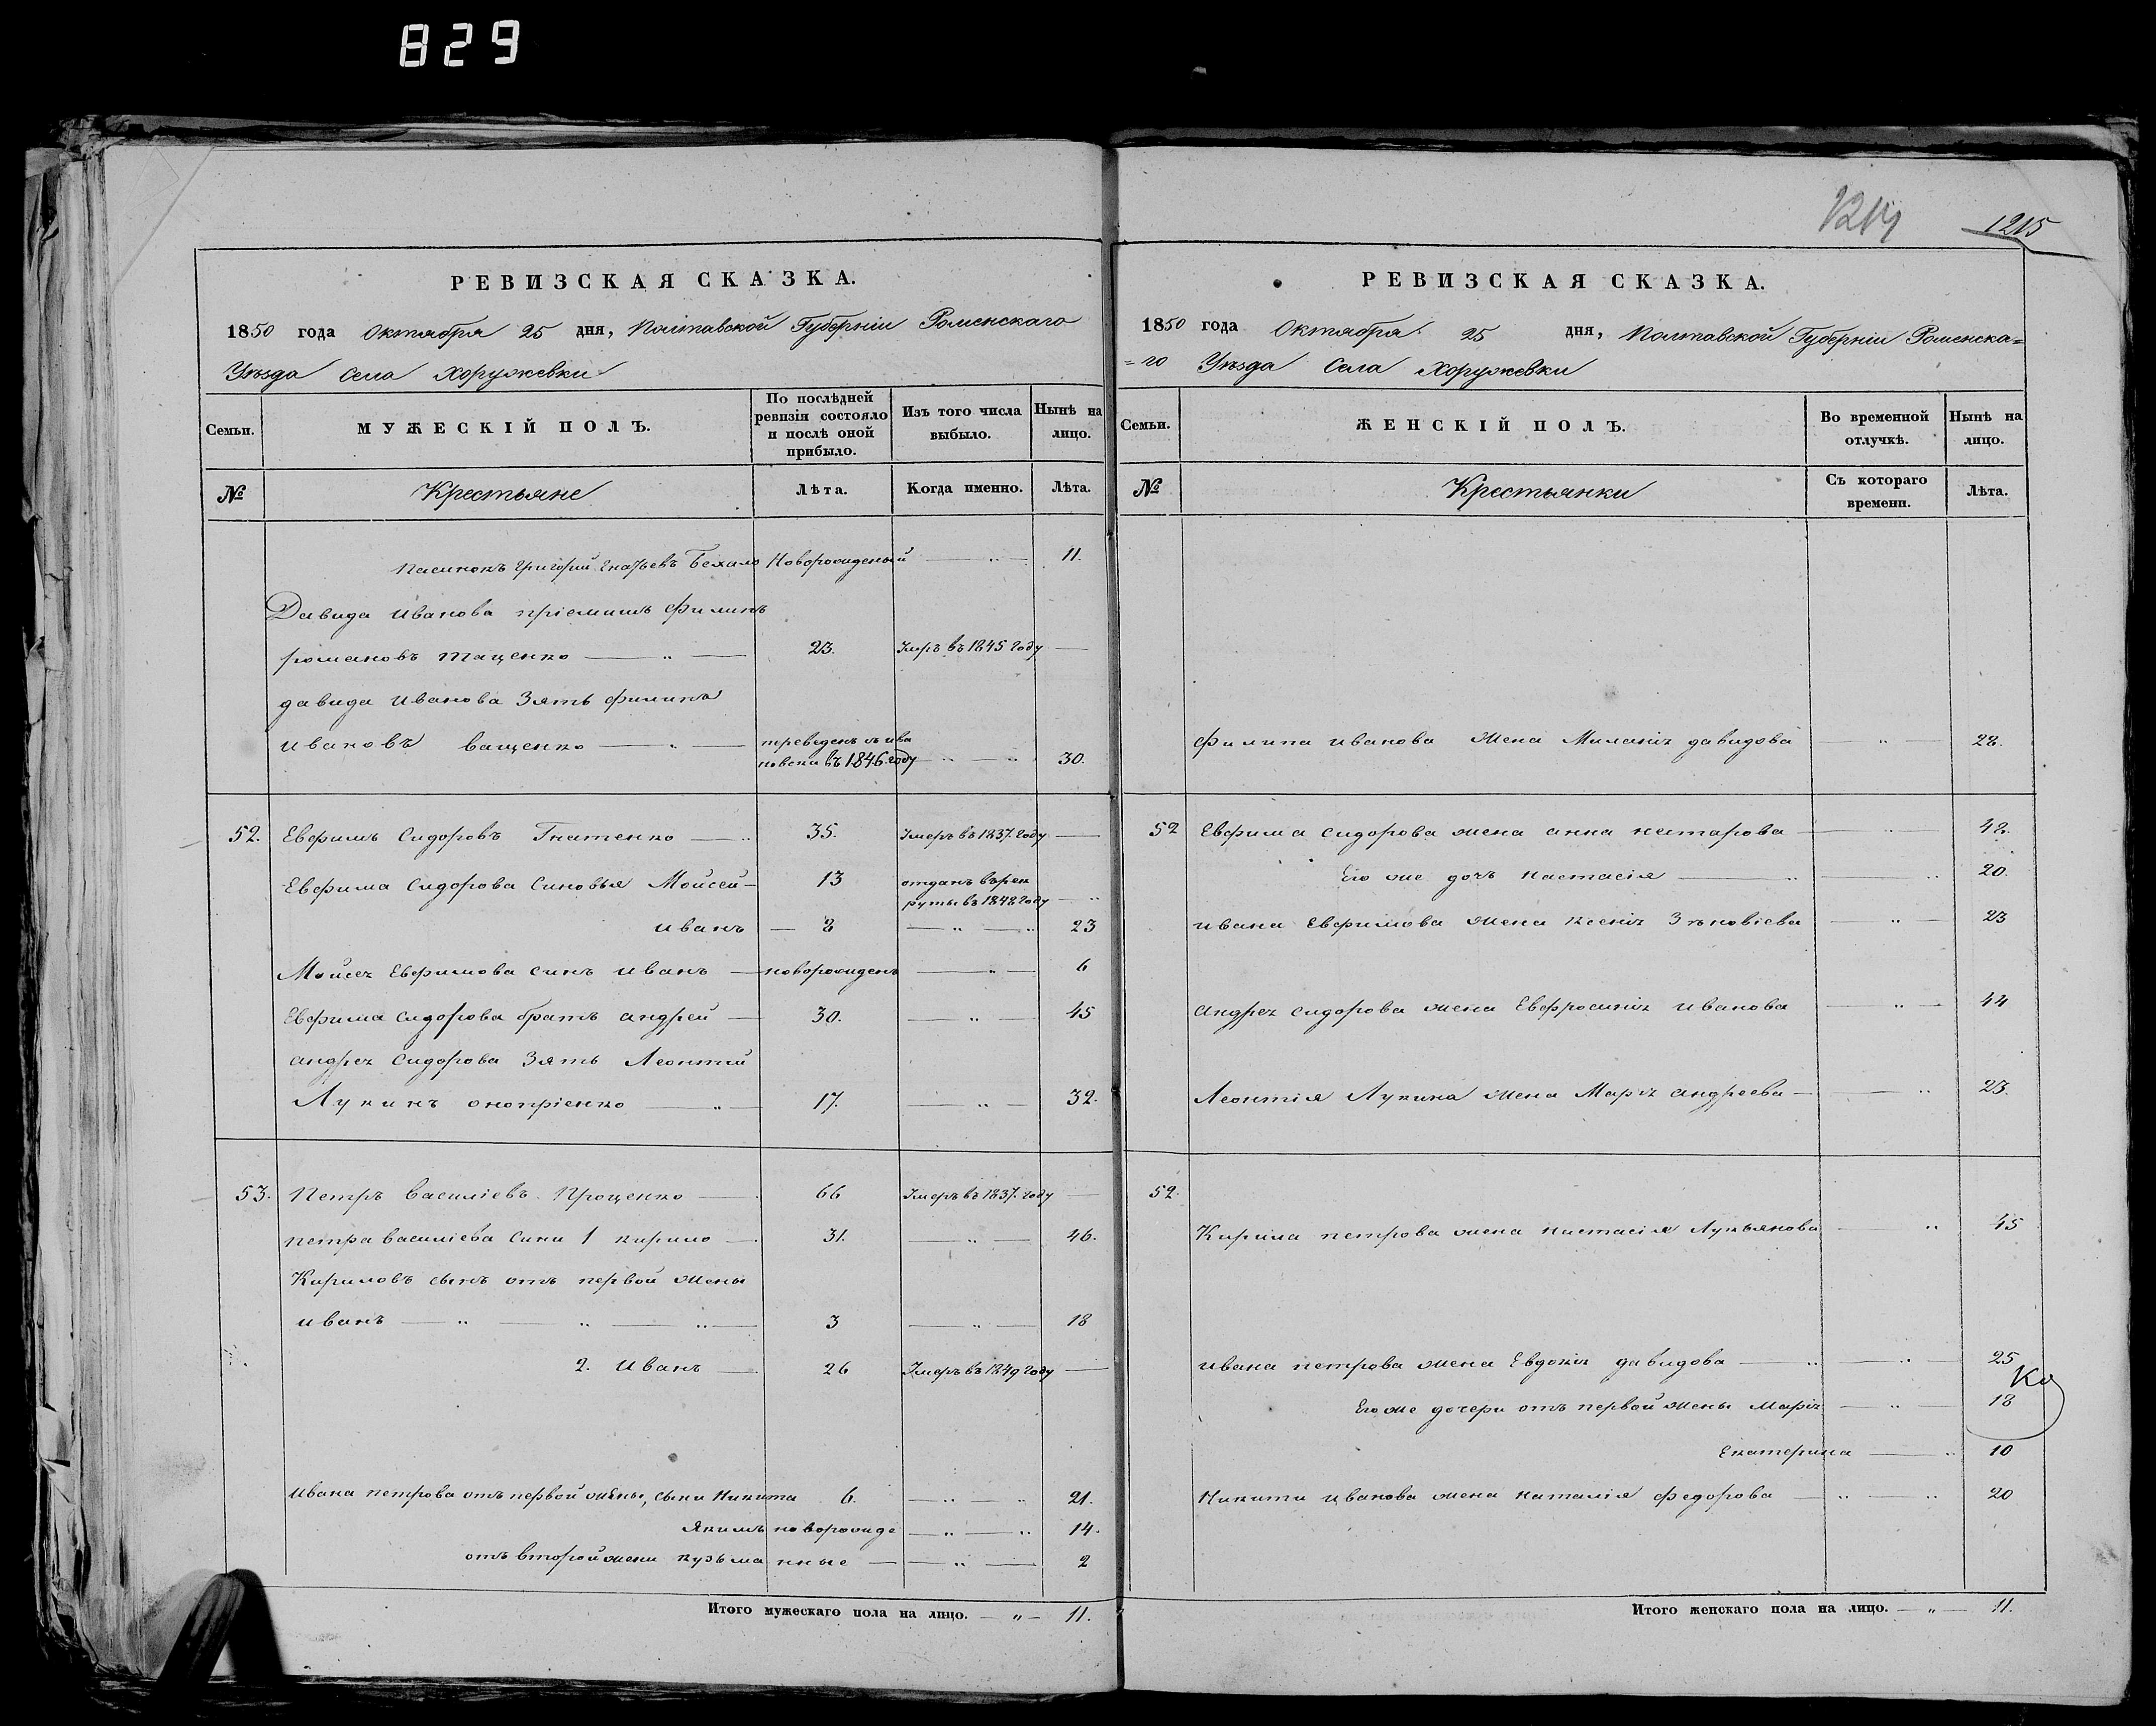 829
1214
1215
РЕВИЗСКАЯ СКАЗКА.
1850 года Октября 25 дня, Полтавской Губерніи Роменскаго
Уѣзда Села Хоружевки
Семьи. МУЖЕСКІЙ ПОЛЪ. По послѣдней ревизіи состояло и послѣ оной прибыло. Изъ того числа выбыло. Нынѣ на лицо.
№ Крестьяне Лѣта. Когда именно. Лѣта.
Пасинокъ Григорій Гнатьевъ Новорожденый — „ — 11.
Давида Иванова пріемишъ Филипъ
романовъ Тащенко — „ — 23. Умръ въ 1845 году —
давида Иванова Зять филипъ
ивановъ ващенко — „ — преведенъ съ ива
новски въ 1846 году — „ — „ 30.
52. Евфимъ Сидоровъ Гнатенко — „ 35. Умеръ въ 1837. году —
Евфима Сидорова Синовья Мойсей — 13 отданъ върек
руты въ 1848 году — „
иванъ — 8 — „ — „ 23
Мойсея Евфимова синъ иванъ — новорожденъ — „ — 6
Евфима Сидорова братъ андрей — 30. — „ — 45
андрея Сидорова Зять Леонтий
Лукинъ оноприенко — „ — 17. — „ — 32.
53. Петръ Василіевъ Проценко — 66 Умеръ въ 1837. году —
петра василіева Сини 1 кирило — 31. — „ — 46.
Кириловъ сынъ отъ первой жены
иванъ — „ — „ — „ — 3 — „ — 18
2. Иванъ — 26 Умеръ въ 1849 году —
Ивана петрова отъ первой жены, сыни Никита 6. — „ — „ 21.
Якимъ новорожде — „ — „ 14.
отъ второй жени кузьма нные — — „ — 2
Итого мужескаго пола на лицо. — „ — 11.
РЕВИЗСКАЯ СКАЗКА.
1850 года Октября 25 дня, Полтавской Губерніи Роменска=
=го Уѣзда Села Хоружевки
Семьи. ЖЕНСКІЙ ПОЛЪ. Во временной отлучкѣ. Нынѣ на лицо.
№ Крестьянки Съ котораго времени. Лѣта.
Филипа иванова жена Миланія давидова — „ — 28.
52 Евфима сидорова жена анна нестарова — „ — 48.
Его же дочь настасія — „ — „ 20.
ивана Евфимова жена ксенія Зѣновіева — „ — 23
андрея сидорова жена Евфросинія иванова — „ — 44
Леонтія Лукина жена Марія андреева — — „ 23.
52.
Кирила петрова жена настасія Лукьянова — „ 45
ивана петрова жена Евдокія давидова — „ — „ — 25
Ка
Его же дочери отъ первой жены Марія — „ — 18
Екатерина — „ 10
Никити иванова жена наталія федорова — „ — „ 20
Итого женскаго пола на лицо. — „ — 11.